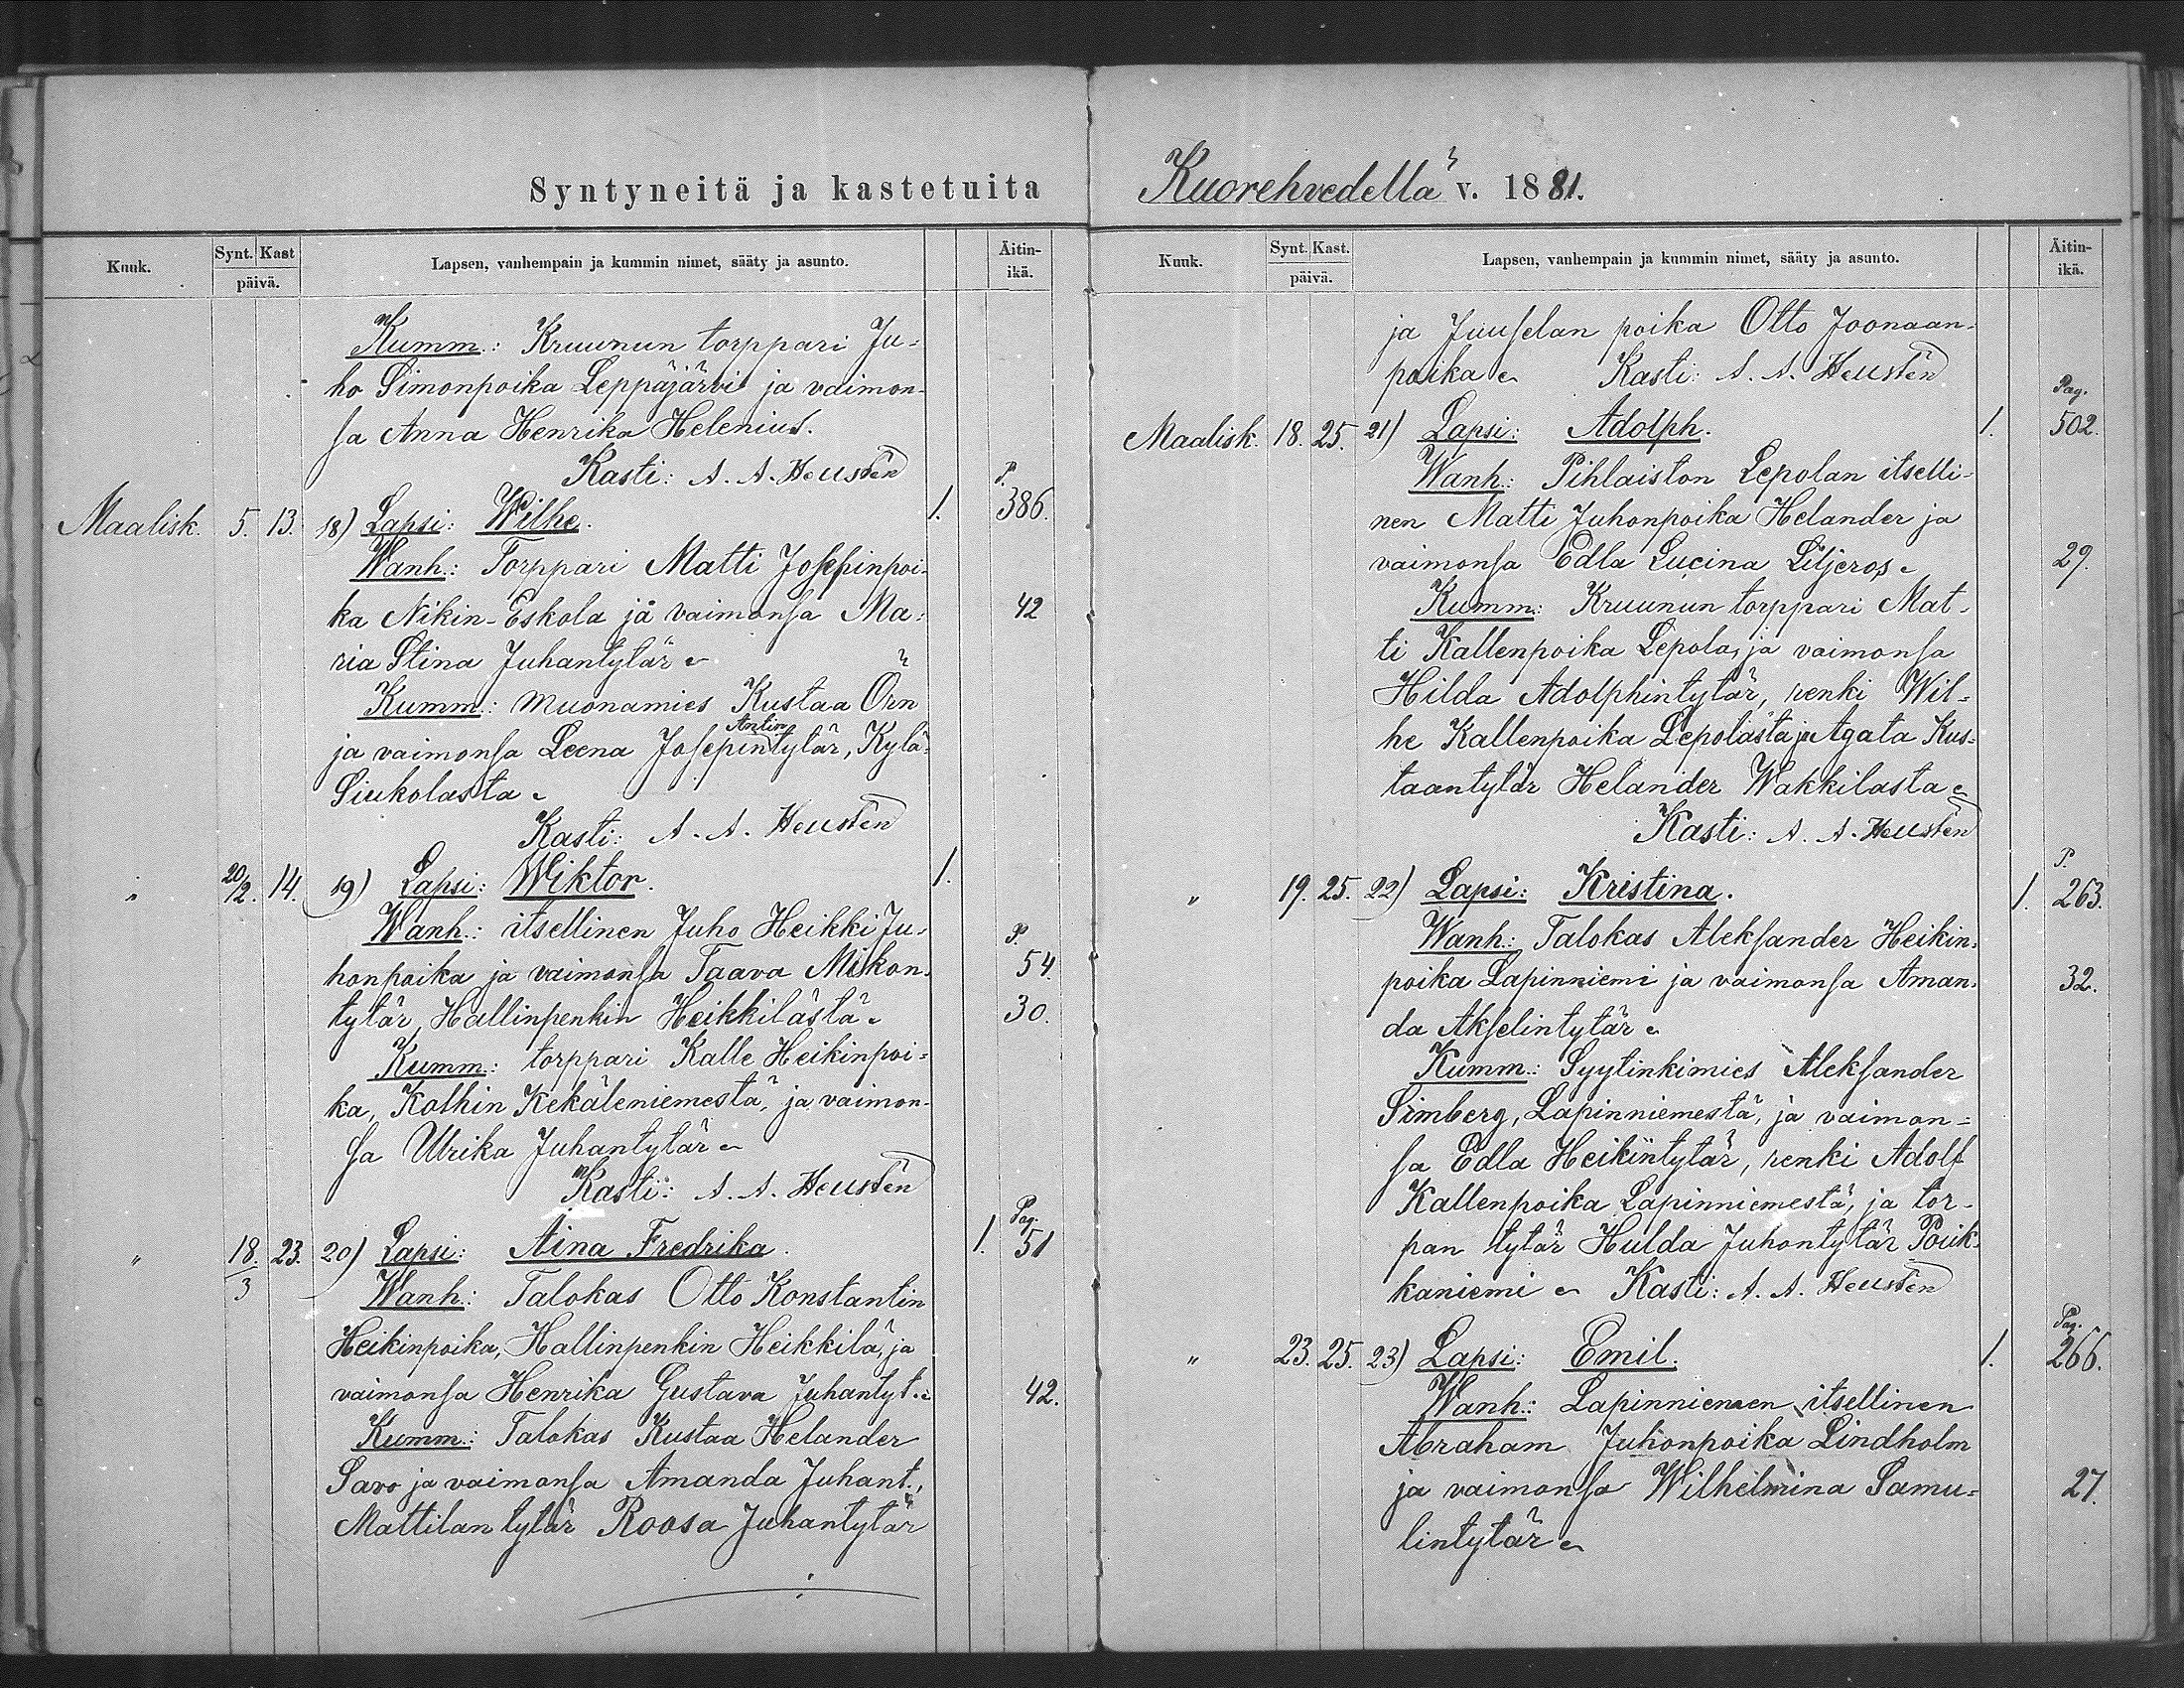 Syntyneitä ja kastetuita
Kuuk.
Synt. Kast
päivä.
Lapsen, vanhempain ja kummin nimet, sääty ja asunto.
Äitin-
ikä.
Kumm.: Kruunun torppari Ju-
ho Simonpoika Leppäjärvi ja vaimon-
sa Anna Henrika Helenius.
Kasti: A. A. Heusten
P.
Maalisk. 5. 13. 18) Lapsi: Wilhe. 1. 386.
Wanh.: Torppari Matti Josepinpoi-
ka Nikin-Eskola ja vaimonsa Ma- 42
ria Stina Juhantytär
Kumm.: Muonamies Kustaa Örn
Antin
ja vaimonsa Leena Josepintytär, Kylä-
Siukolasta
Kasti: A. A. Heusten
" 20/2. 14. 19) Lapsi: Wiktor. 1.
Wanh.: itsellinen Juho Heikki Ju- P.
honpoika ja vaimonsa Taava Mikon- 54.
tytär, Hallinpenkin Heikkilästä 30.
Kumm.: torppari Kalle Heikinpoi-
ka, Kolhin Kekäleniemestä, ja vaimon-
sa Ulrika Juhantytär
Kasti: A. A. Heusten
Pag.
" 18./3 23. 20) Lapsi: Aina Fredrika. 1. 51
Wanh.: Talokas Otto Konstantin
Heikinpoika, Hallinpenkin Heikkilä, ja
vaimonsa Henrika Gustava Juhantyt. 42.
Kumm.: Talokas Kustaa Helander
Savo ja vaimonsa Amanda Juhant.,
Mattilan tytär Roosa Juhantytär
Kuorehvedellä v. 1881.
Kuuk.
Synt. Kast.
päivä.
Lapsen, vanhempain ja kummin nimet, sääty ja asunto.
Äitin-
ikä.
ja Juuselan poika Otto Joonaan-
poika Kasti: A. A. Heusten
Pag.
Maalisk. 18. 25. 21) Lapsi: Adolph. 1. 502.
Wanh.: Pihlaiston Lepolan itselli-
nen Matti Juhonpoika Helander ja
vaimonsa Edla Lucina Liljeros 29.
Kumm.: Kruunun torppari Mat-
ti Kallenpoika Lepola, ja vaimonsa
Hilda Adolphintytär, renki Wil-
he Kallenpoika Lepolasta ja Agata Kus-
taantytär Helander Wakkilasta
Kasti: A. A. Heusten
P.
" 19. 25. 22) Lapsi: Kristina. 1. 263.
Wanh.: Talokas Aleksander Heikin-
poika Lapinniemi ja vaimonsa Aman- 32.
da Akselintytär
Kumm.: Syytinkimies Aleksander
Simberg, Lapinniemestä, ja vaimon-
sa Edla Heikintytär, renki Adolf
Kallenpoika Lapinniemestä, ja tor-
pan tytär Hulda Juhontytär Poik-
kaniemi Kasti: A. A. Heusten
Pag.
" 23. 25. 23) Lapsi: Emil. 1. 266.
Wanh.: Lapinniemen itsellinen
Abraham Juhonpoika Lindholm
ja vaimonsa Wilhelmina Samu- 27.
lintytär